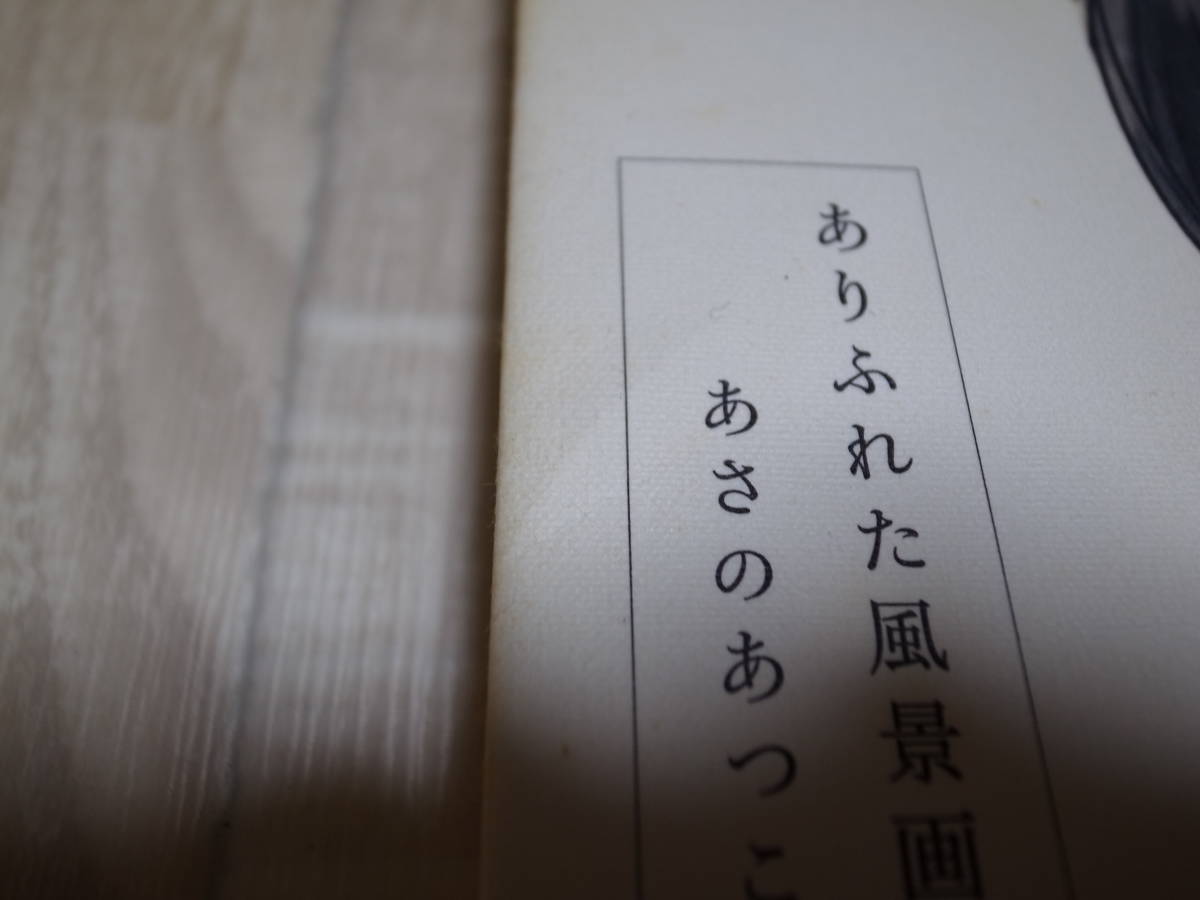 ありふれた風景画
あさのあつこ